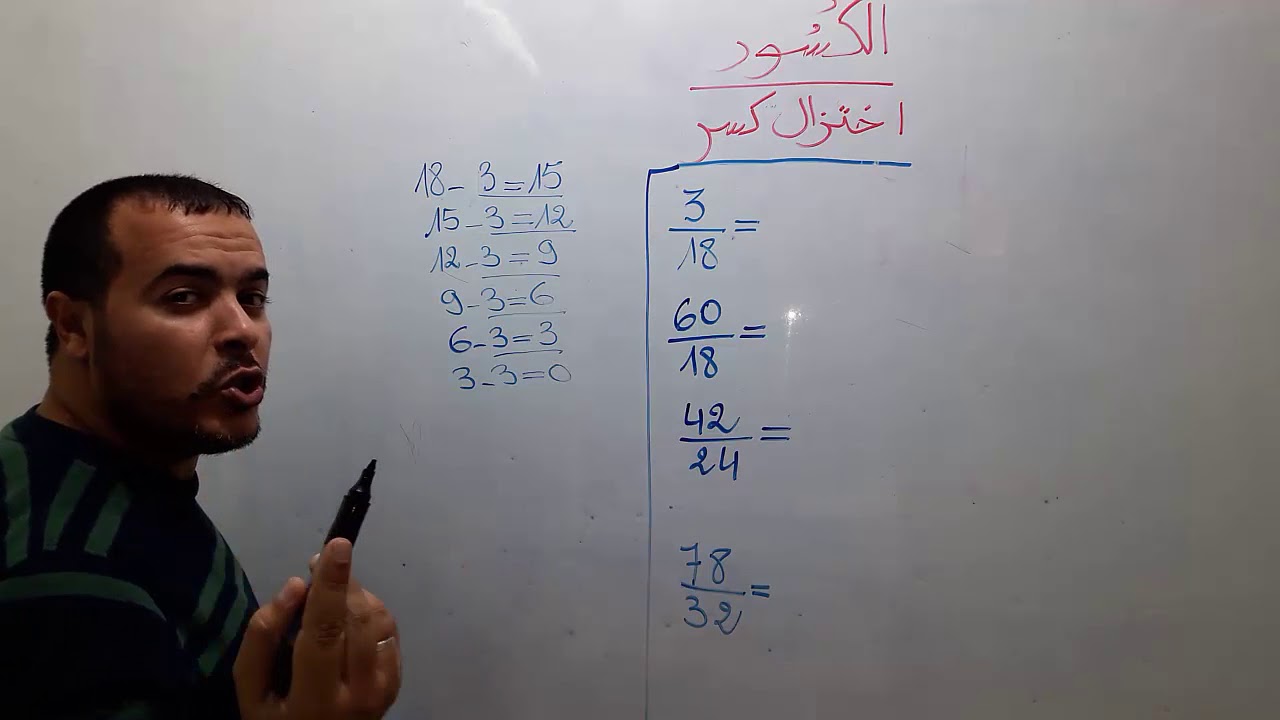 الكسُور
اختزال كسر
18 - 3 = 15
15 - 3 = 12
12 - 3 = 9
9 - 3 = 6
6 - 3 = 3
3 - 3 = 0
3/18 =
60/18 =
42/24 =
78/32 =